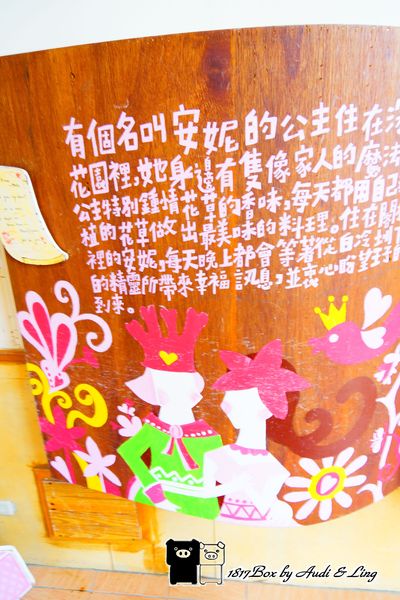 有個名叫安妮的公主住在
花園裡,她身邊有隻像家人的魔法
公主特別鍾情花草的香味,每天都用自己
植的花草做出最美味的料理。住在
裡的安妮,每天晚上都會等著從
的精靈所帶來幸福訊息,並衷心盼望
到來。
1817Box by Audi & Ling